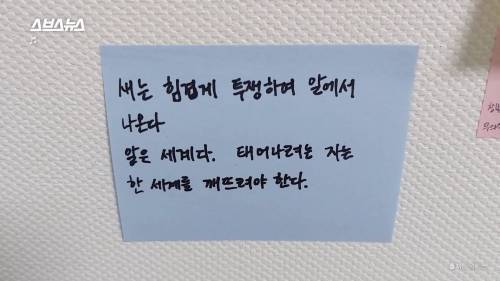 스브스뉴스
새는 힘겹게 투쟁하여 알에서
나온다
알은 세계다. 태어나려는 자는
한 세계를 깨뜨려야 한다.